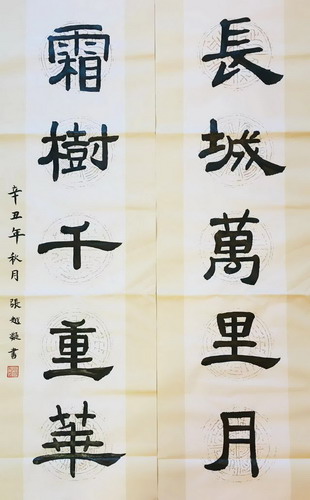 長城萬里月
霜樹千重華
辛丑年秋月張越 書